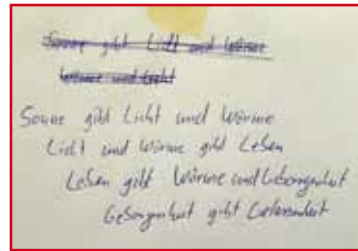 Sonne gibt Licht und Wärme
Wärme und Licht
Sonne gibt Licht und Wärme
Licht und Wärme gibt Leben
Leben gibt Wärme und Geborgenheit
Geborgenheit gibt